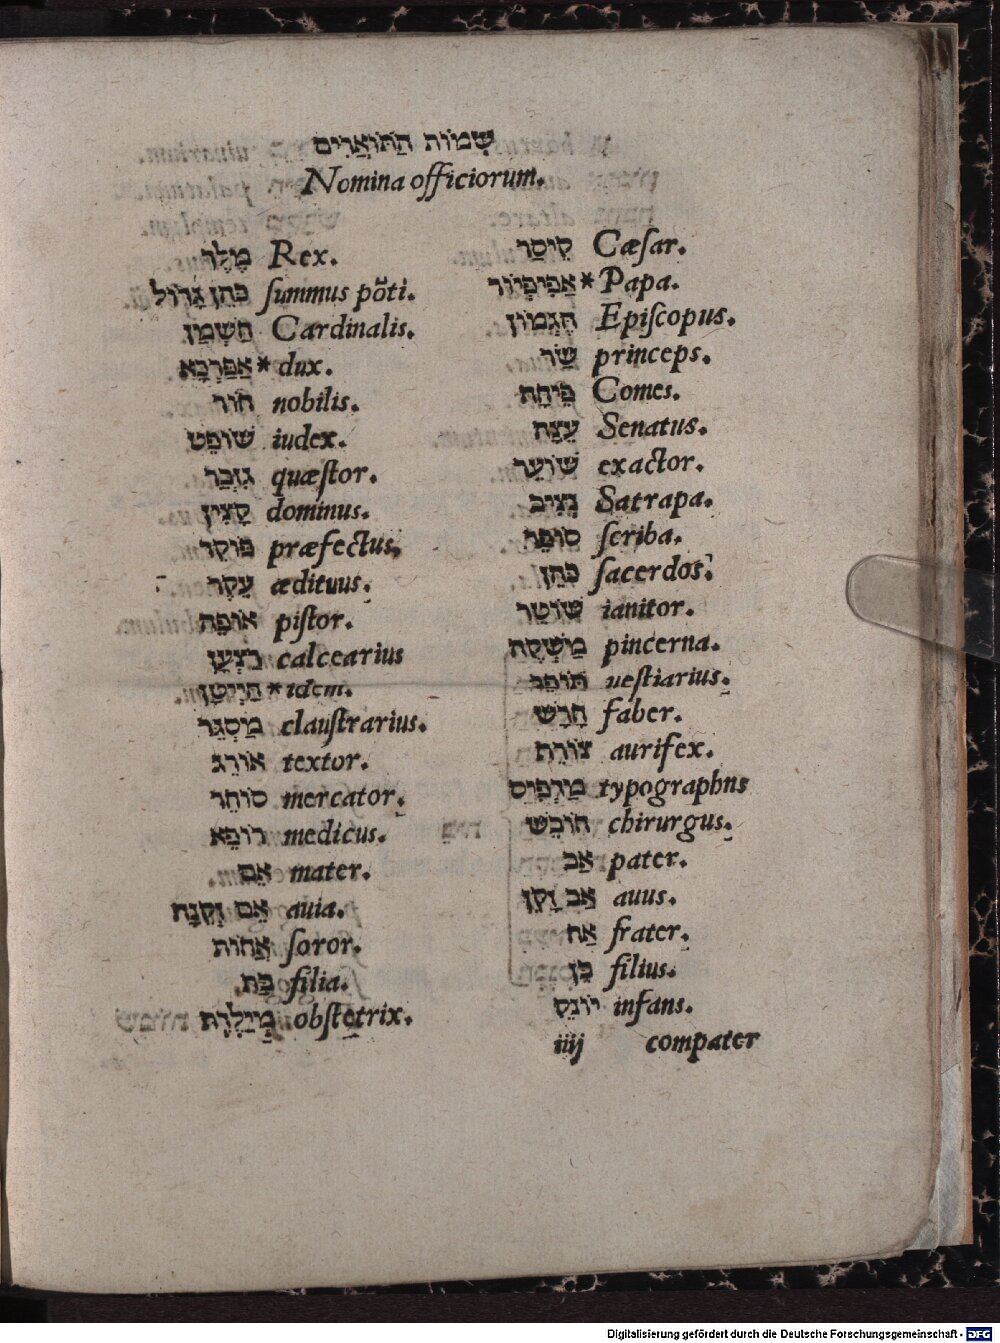 שְׁמוֹת הַתּוֹאֲרִים
Nomina officiorum.
קֵיסַר Cæſar.
אַפִּיפְיוֹר * Papa.
הֶגְמוֹן Epiſcopus.
שַׂר princeps.
פֶּיחָה Comes.
עֵצָה Senatus.
שׁוֹעֵר exactor.
נְצִיב Satrapa.
סוֹפֵר ſcriba.
כֹּהֵן ſacerdos.
שׁוֹטֵר ianitor.
מַשְׁקֶה pincerna.
תּוֹפֵר ueſtiarius.
חָרָשׁ faber.
צוֹרֵף aurifex.
מַדְפִּיס typographus
חוֹבֵשׁ chirurgus.
אַב pater.
אָב זָקֵן auus.
אַח frater.
בֵּן filius.
יוֹנֵק infans.
iiij compater
מֶלֶךְ Rex.
כֹּהֵן גָּדוֹל ſummus põti.
חַשְׁמַן Cardinalis.
* dux.
חוֹר nobilis.
שׁוֹפֵט iudex.
גִּזְבַּר quæſtor.
קָצִין dominus.
פּוֹקֵד præfectus.
ædituus.
אוֹפֶה piſtor.
calcearius
* idem.
מַסְגֵּר clauſtrarius.
אוֹרֵג textor.
סוֹחֵר mercator.
רוֹפֵא medicus.
אֵם mater.
אֵם זְקֵנָה auia.
אָחוֹת ſoror.
בַּת filia.
מְיַלֶּדֶת obſtetrix.
Digitalisierung gefördert durch die Deutsche Forschungsgemeinschaft - DFG